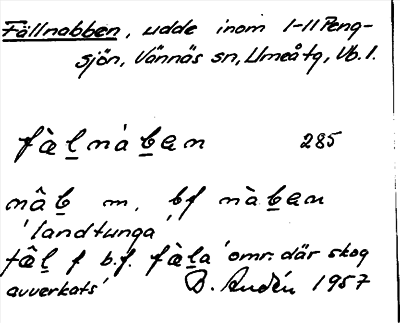 Fällnabben, udde inom 1-11 Peng-
sjön, Vännäs sn, Umeåtg, Vb. l.
fàḻnàḇan 285
nâḇ m. bf nàḇan
'landtunga'
fâḻ f b.f. fàḻa 'omr. där skog
avverkats' B. Audén 1957